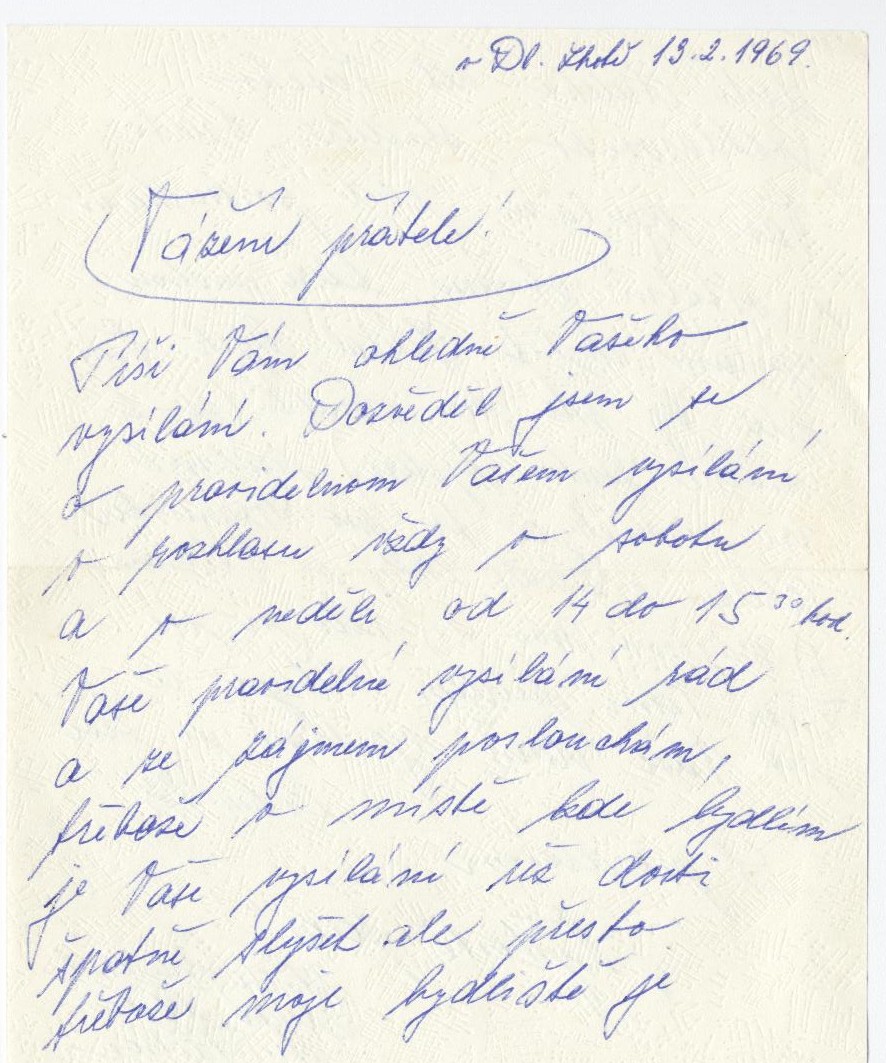 v Dl. Lhotě 13.2.1969.
Vážení přátelé!
Píši Vám ohledně Vašeho
vysílání. Dozvěděl jsem se
o pravidelnom Vašem vysílání
v rozhlasu vždy v sobotu
a v neděli od 14 do 15 30 hod.
Vaše pravidelné vysílání rád
a ze zájmem poslouchám,
třebaže v místě kde bydlím
je Vaše vysílání už dosti
špatně slyšet ale přesto
třebaže moje bydliště je